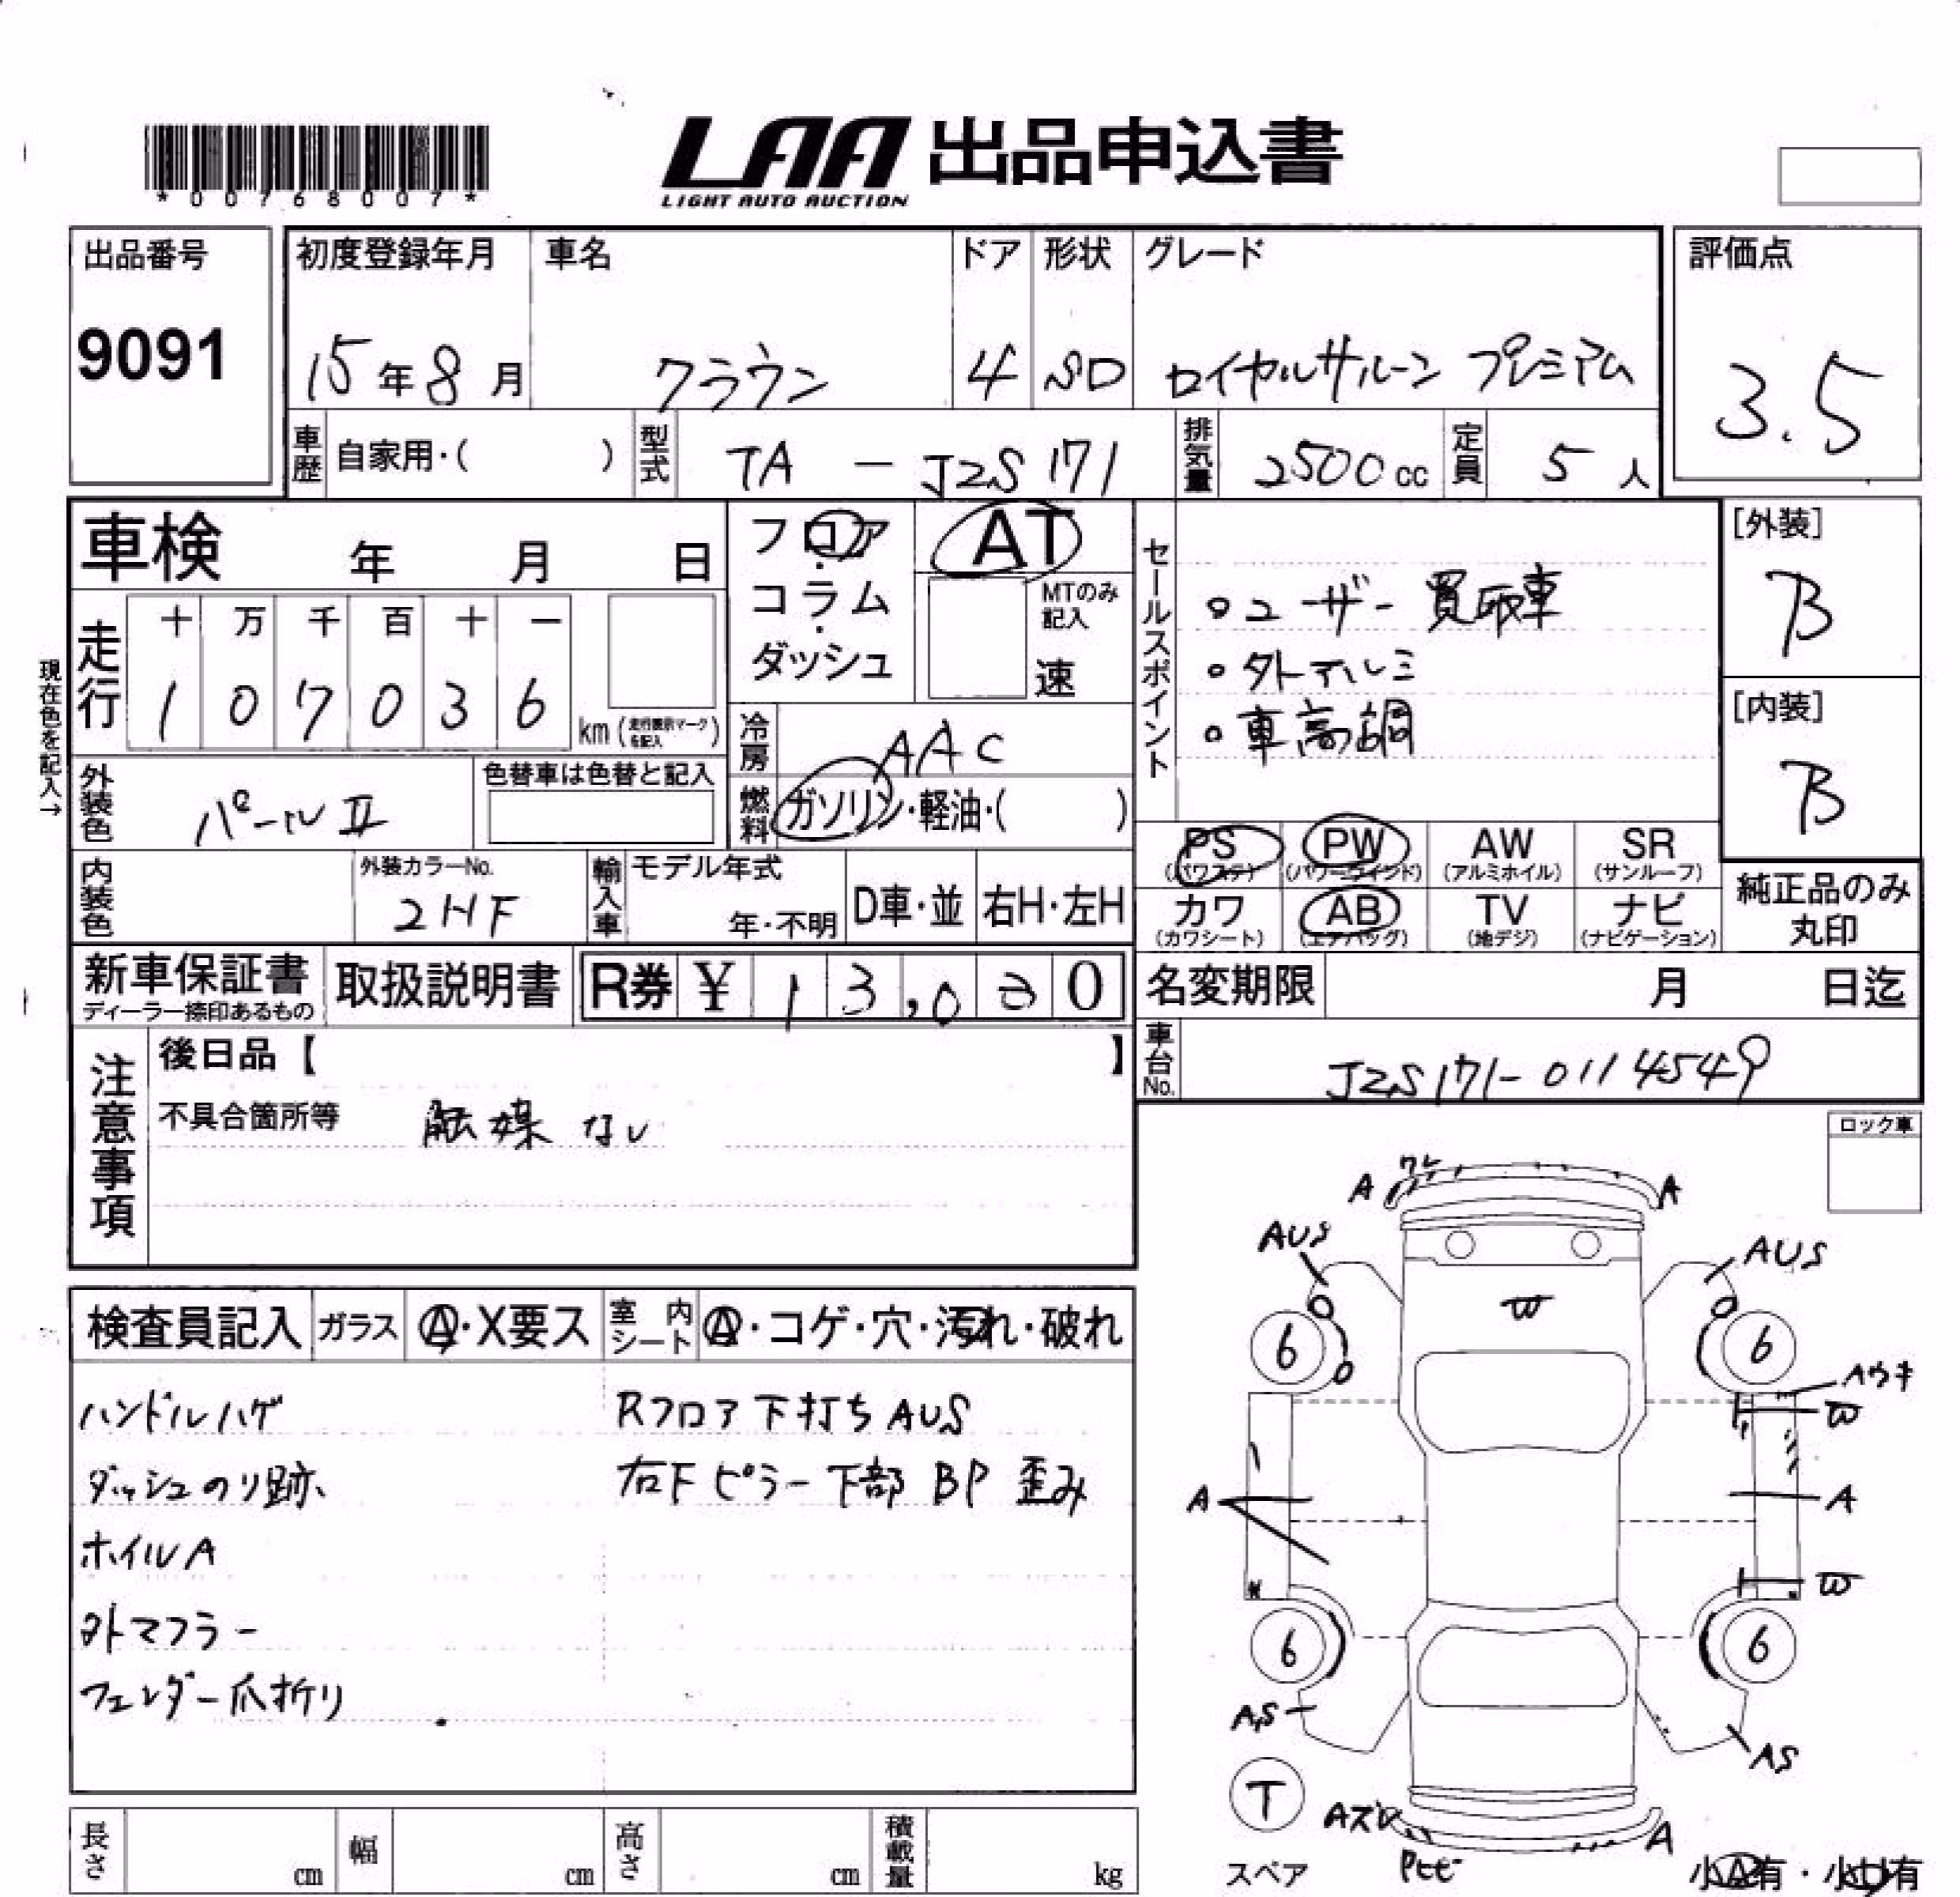 LAA 出品申込書
LIGHT AUTO AUCTION
*00768007*
出品番号
9091
初度登録年月
15年8月
車名
クラウン
ドア
4
形状
SD
グレード
ロイヤルサルーン プレミアム
評価点
3.5
車歴 自家用・( )
型式 TA - JZS171
排気量 2500cc
定員 5人
車検 年 月 日
フロア・コラム・ダッシュ
AT
MTのみ記入
速
セールスポイント
・ユーザー買取車
・外アルミ
・車高調
[外装]
B
[内装]
B
現在色を記入→
走行
十 万 千 百 十 一
1 0 7 0 3 6 km (走行表示マークを記入)
冷房 AAC
燃料 ガソリン・軽油・( )
外装色 パールⅡ
色替車は色替と記入
内装色
外装カラーNo.
2HF
輸入車
モデル年式
年・不明
D車・並
右H・左H
PS (パワステ)
PW (パワーウインド)
AW (アルミホイル)
SR (サンルーフ)
カワ (カワシート)
AB (エアバッグ)
TV (地デジ)
ナビ (ナビゲーション)
純正品のみ
丸印
新車保証書
ディーラー捺印あるもの
取扱説明書
R券 ¥ 13,0 0
名変期限 月 日迄
車台No. JZS171-0114549
注意事項
後日品【 】
不具合箇所等 触媒なし
ロック車
検査員記入
ガラス Ⓐ・X要ス
室内シート Ⓐ・コゲ・穴・汚れ・破れ
ハンドルハゲ
ダッシュのり跡
ホイルA
外マフラー
フェンダー爪折り
Rフロア下打ちAUS
右Fピラー下部 BP 歪み
A ワレ A
AUS AUS
W
6 6
Aウキ
W
A A
W
6 6
AS AS
T
スペア
Aズレ A
小A有・小U有
長さ cm
幅 cm
高さ cm
積載量 kg